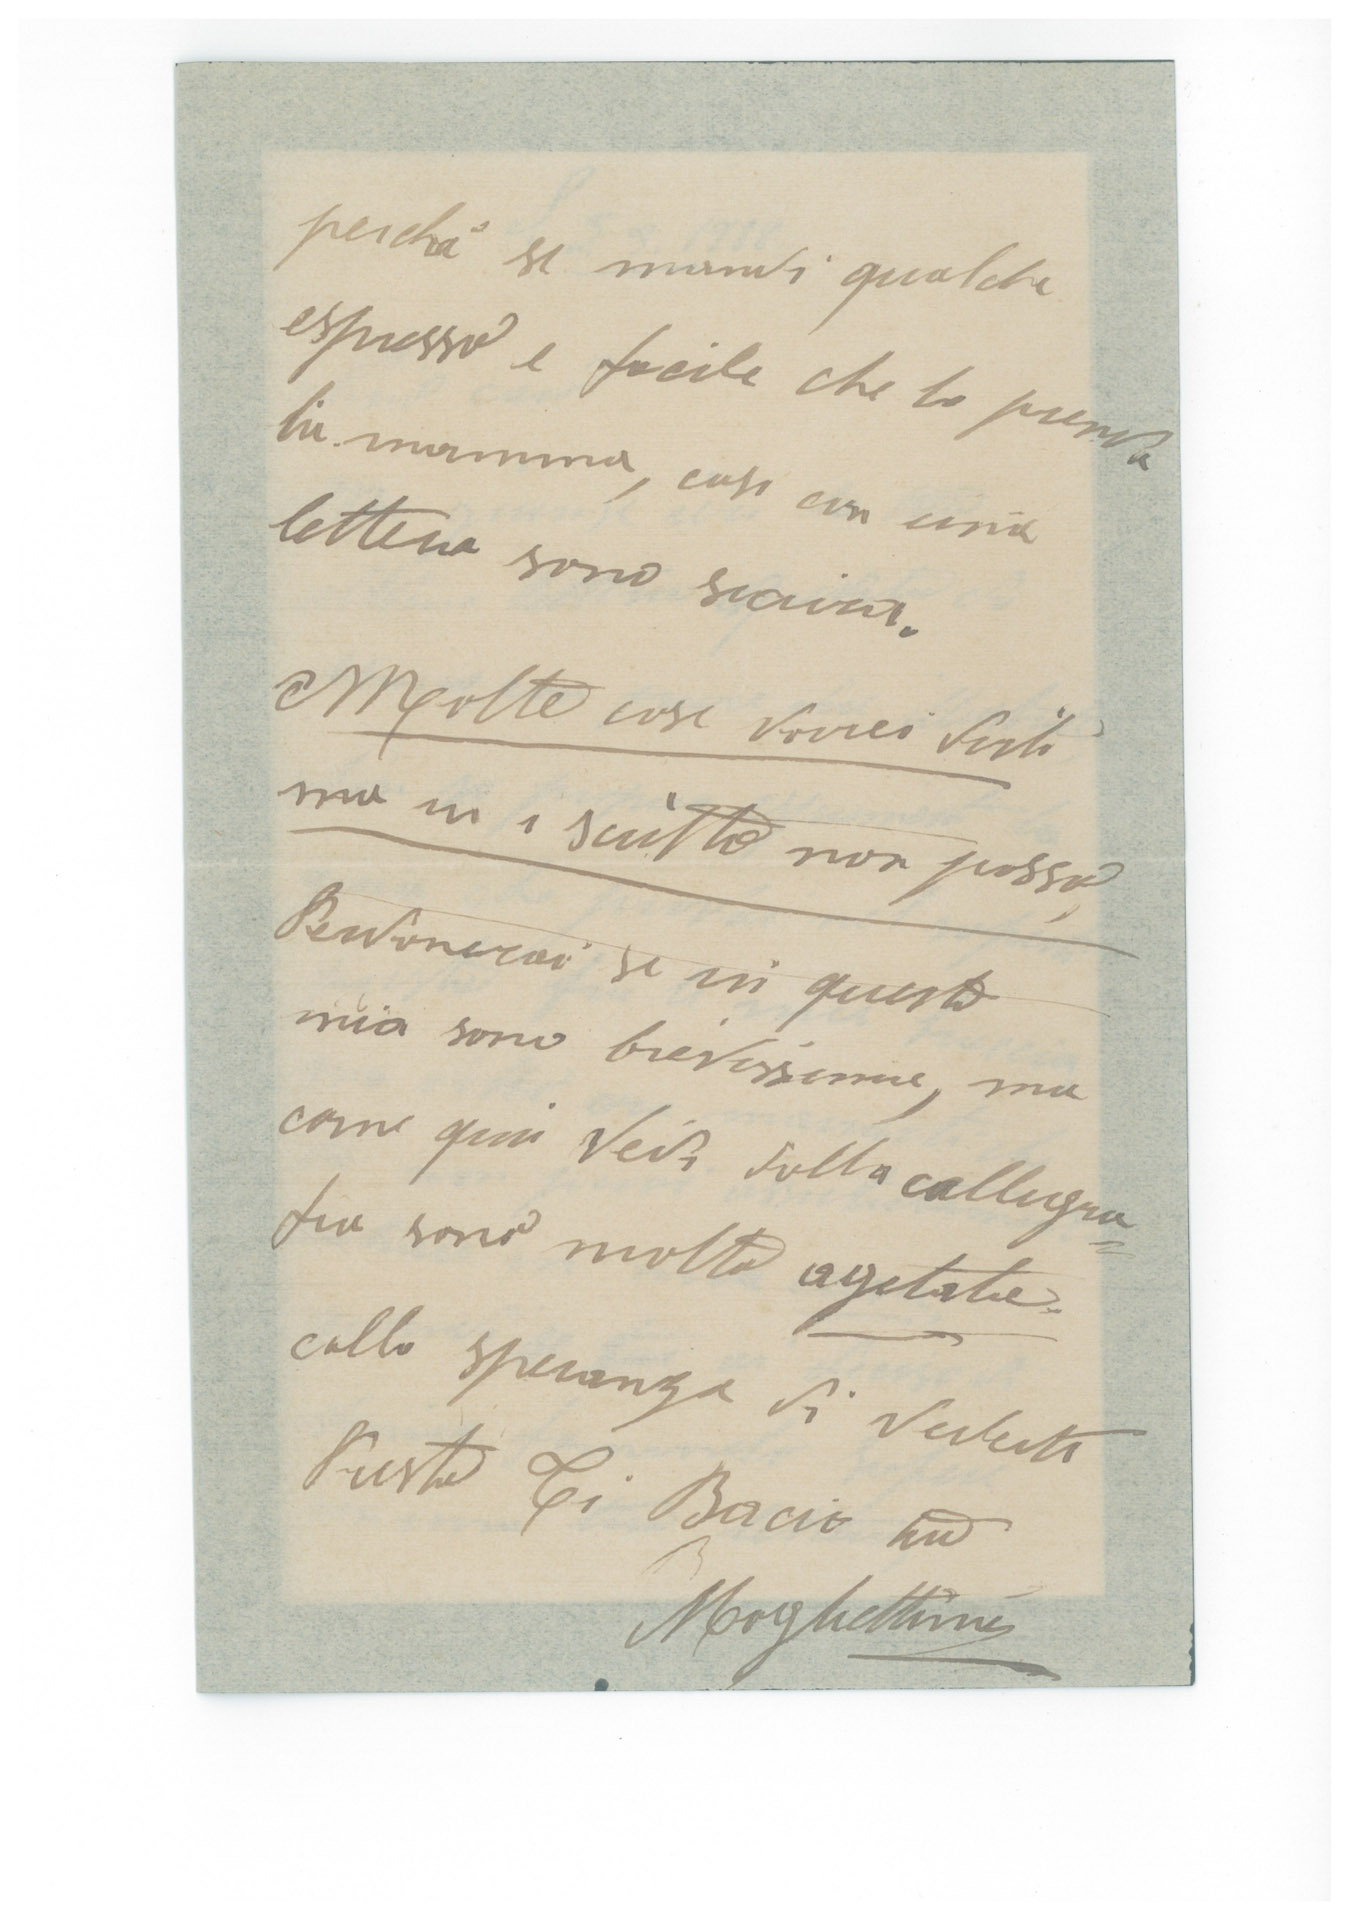 perchè se mandi qualche
espresso e facile che lo prenda
la mamma, cosi con una
lettera sono sicura.
Molte cose vorrei dirti
ma in i scritto non posso,
Perdonerai se in questa
mia sono brevissima, ma
come quì vedi dalla callugra=
fia sono molto agetata.
colla speranza di vederti
Presto Ti Bacio tua
Moglettina